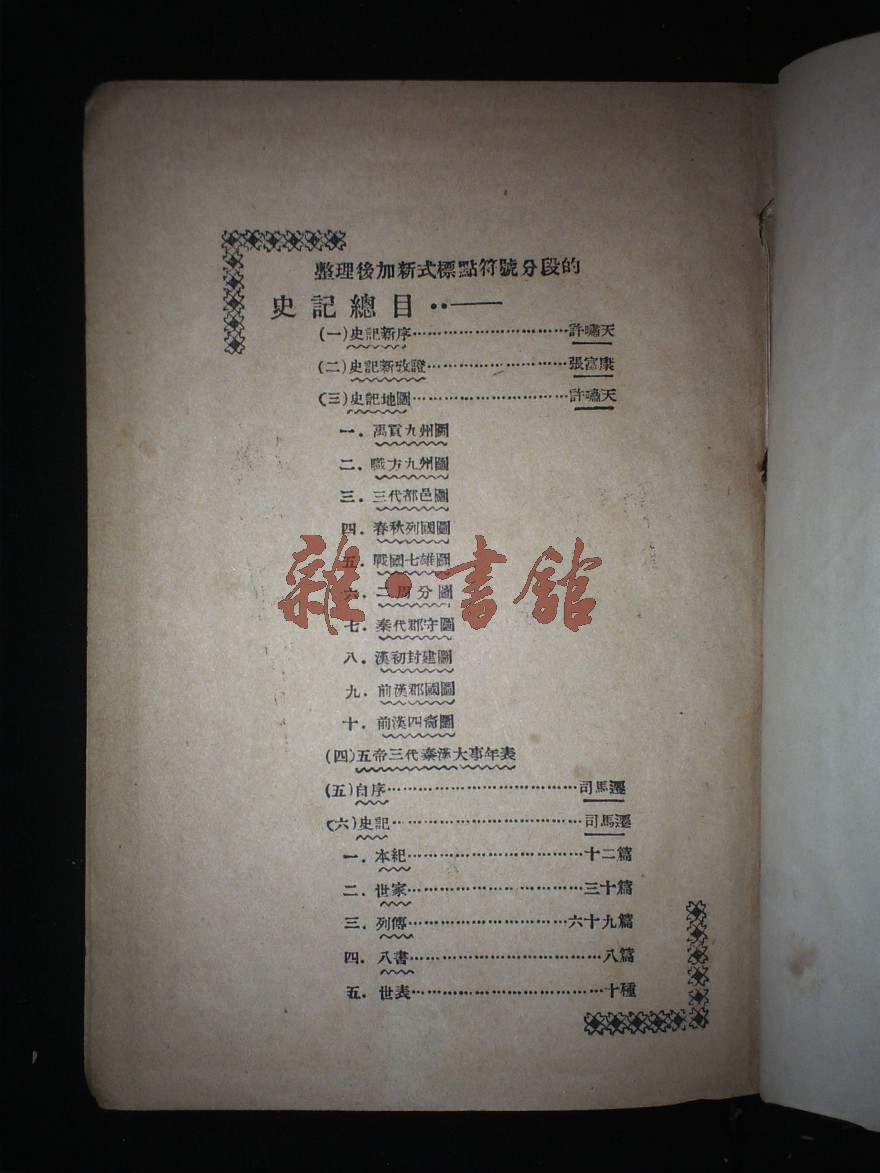 整理後加新式標點符號分段的
史記總目··——
(一)史記新序…………………………許嘯天
(二)史記新攷證………………………張富康
(三)史記地圖…………………………許嘯天
一．禹貢九州圖
二．職方九州圖
三．三代都邑圖
四．春秋列國圖
五．戰國七雄圖
六．二周分圖
七．秦代郡守圖
八．漢初封建圖
九．前漢郡國圖
十．前漢四裔圖
(四)五帝三代秦漢大事年表
(五)自序………………………………司馬遷
(六)史記………………………………司馬遷
一．本紀……………………………十二篇
二．世家……………………………三十篇
三．列傳…………………………六十九篇
四．八書………………………………八篇
五．世表………………………………十種
雜·書館